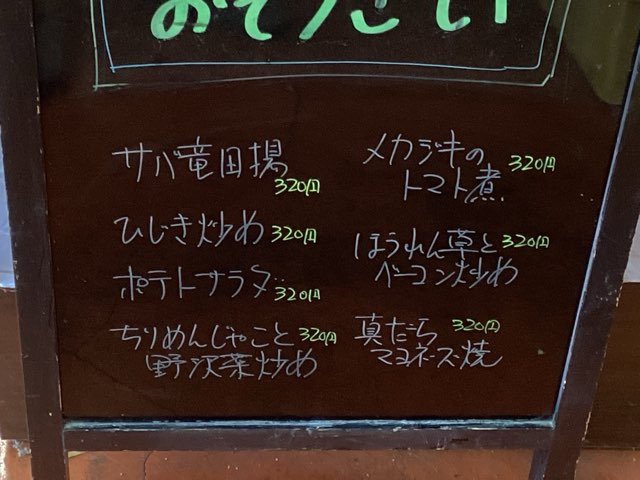 おそうざい
サバ竜田揚
320円
ひじき炒め 320円
ポテトサラダ 320円
ちりめんじゃこと 320円
野沢菜炒め
メカジキの 320円
トマト煮
ほうれん草と 320円
ベーコン炒め
真だら 320円
マヨネーズ焼